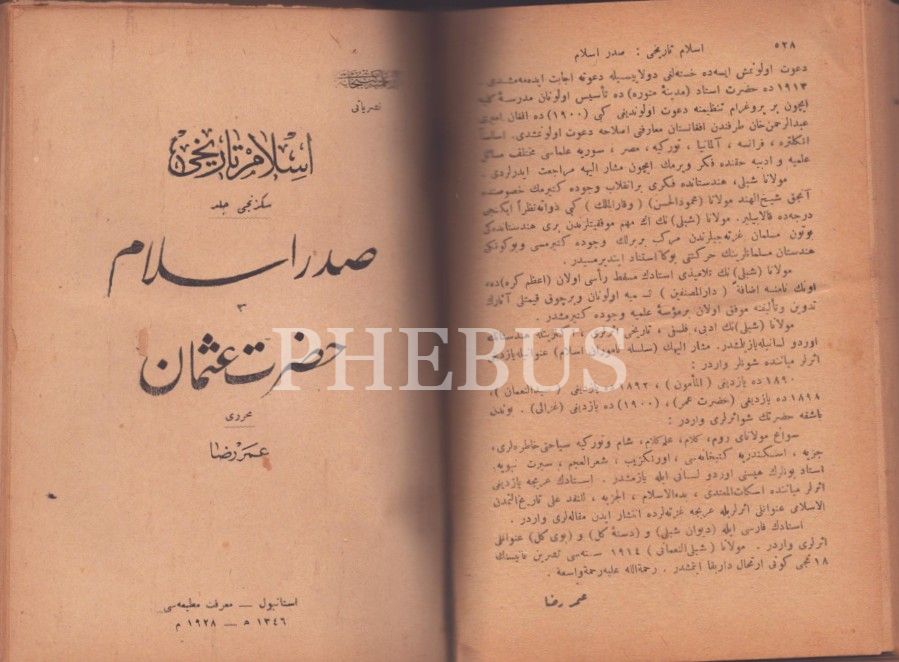 نشریاتی
اسلام تاریخی
سکزنجی جلد
صدر اسلام
۳
حضرت عثمان
محرری
عمر رضا
استانبول — معرفت مطبعه‌سی
۱۳۴۶ ه — ۱۹۲۸ م
۵۲۸
اسلام تاریخی : صدر اسلام
دعوت اولونمش ایسه‌ده خسته‌لغی دولاییسیله دعوته اجابت ایده‌مه‌مشدی .
۱۹۱۳ ده حضرت استاد (مدینهٔ منوره) ده تأسیس اولونان مدرسهٔ کلیه
ایچون بر پروغرام تنظیمنه دعوت اولوندیغی کبی (۱۹۰۰) ده افغان امیری
عبدالرحمن خان طرفندن افغانستان معارفنی اصلاحه دعوت اولونمشدی .
انکلتره ، فرانسه ، آلمانیا ، تورکیه ، مصر ، سوریه علماسی مختلف مسائل
علمیه و ادبیه حقنده فکر ویرمك ایچون مشار الیهه مراجعت ایدرلردی .
مولانا شبلی، هندستانده فکری بر انقلاب وجوده کتیرمك خصوصنده
آنجق شیخ‌الهند مولانا (محمودالحسن) و (وقارالملك) کبی ذواته نظراً ایکنجی
درجه‌ده قالابیلیر. مولانا (شبلی) نك اك مهم موفقیتلرندن بری هندستانده‌کی
بوتون مسلمان غزته‌جیلرندن مرکب بر برلك وجوده کتیرمسی و بوکونکی
هندستان مسلمانلرینك حرکتنی بوکا استناد ایتدیرمسیدر .
مولانا (شبلی) نك تلامیذی استادك مسقط رأسی اولان (اعظم کره) ده
اونك نامنه اضافةً (دارالمصنفین) تسمیه اولونان و برچوق قیمتلی آثارك
تدوین و تألیفنه موفق اولان بر مؤسسهٔ علمیه وجوده کتیرمشدر .
مولانا (شبلی) نك ادبی، فلسفی ، تاریخی هندستانك
اوردو لسانیله یازیلمشدر. مشار الیهك (سلسله ناموران اسلام) عنوانیله یازدیغی
اثرلر میاننده شونلر واردر :
۱۸۹۰ ده یازدیغی (المأمون) ، ۱۸۹۲ یازدیغی (سیرةالنعمان) ،
۱۸۹۸ ده یازدیغی (حضرت عمر) ، (۱۹۰۰) ده یازدیغی (غزالی) . بوندن
باشقه حضرتك شو اثرلری واردر :
سوانح مولانای روم، کلام، علم کلام، شام و تورکیه سیاحتی خاطره‌لری،
جزیه ، اسکندریه کتبخانه‌سی ، اورنکزیب ، شعرالعجم ، سیرت نبویه.
استاد بونلرك هپسنی اوردو لسانی ایله یازمشدر . استادك عربجه یازدیغی
اثرلر میاننده اسکات المعتدی ، بدءالاسلام ، الجزیه ، النقد علی تاریخ التمدن
الاسلامی عنوانلی اثرلریله عربجه غزته‌لرده انتشار ایدن مقاله‌لری واردر .
استادك فارسی ایله (دیوان شبلی) و (دستهٔ کل) و (بوی کل) عنوانلی
اثرلری واردر . مولانا (شبلی‌النعمانی) ۱۹۱۴ سنه‌سی تشرین ثانیسنك
۱۸ نجی کونی ارتحال دار بقا ایتمشدر . رحمةالله علیه رحمة واسعة .
عمر رضا
PHEBUS